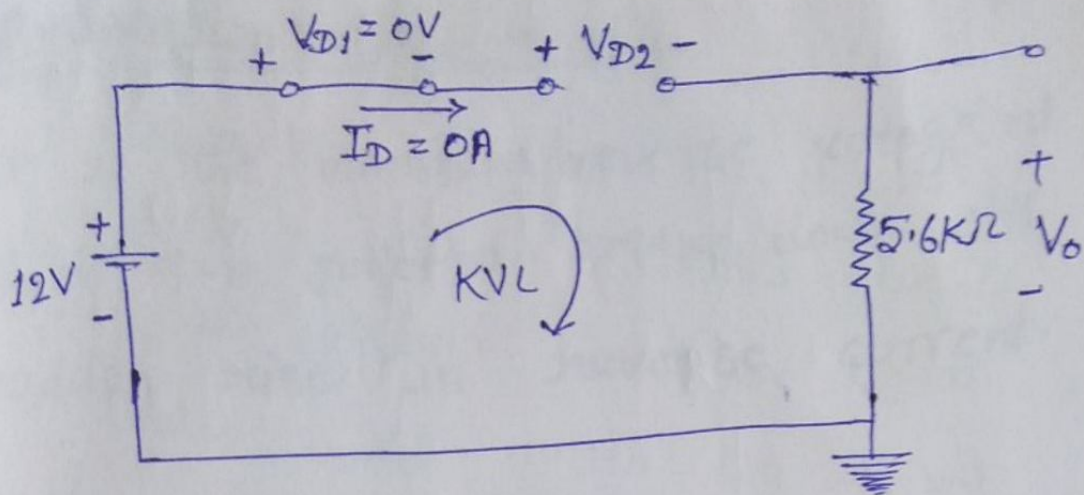 V_D1 = 0V
+ -
+ V_D2 -
I_D = 0A
+
12V
-
KVL
5.6KΩ
+
V_0
-